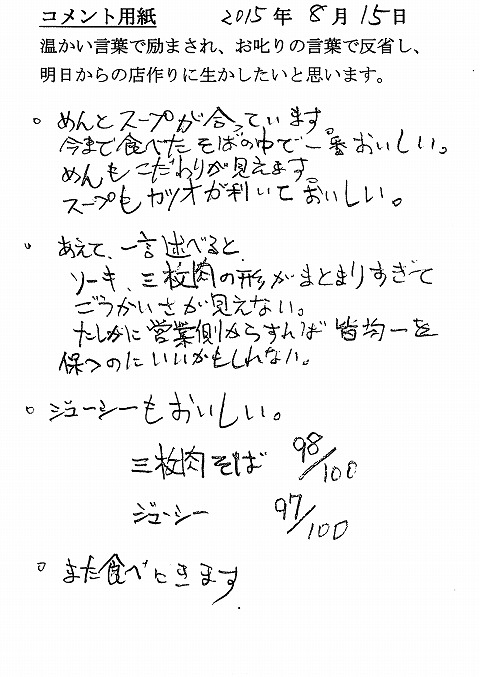 コメント用紙 2015年 8月15日
温かい言葉で励まされ、お叱りの言葉で反省し、
明日からの店作りに生かしたいと思います。
○ めんとスープが合っています。
今まで食べたそばの中で一番おいしい。
めんもこだわりが見えます。
スープもカツオが利いておいしい。
○ あえて、一言述べると、
ソーキ、三枚肉の形がまとまりすぎて
ごうかいさが見えない。
たしかに営業側からすれば皆均一を
保つのにいいかもしれない。
○ ジューシーもおいしい。
三枚肉そば 98/100
ジューシー 97/100
○ また食べにきます